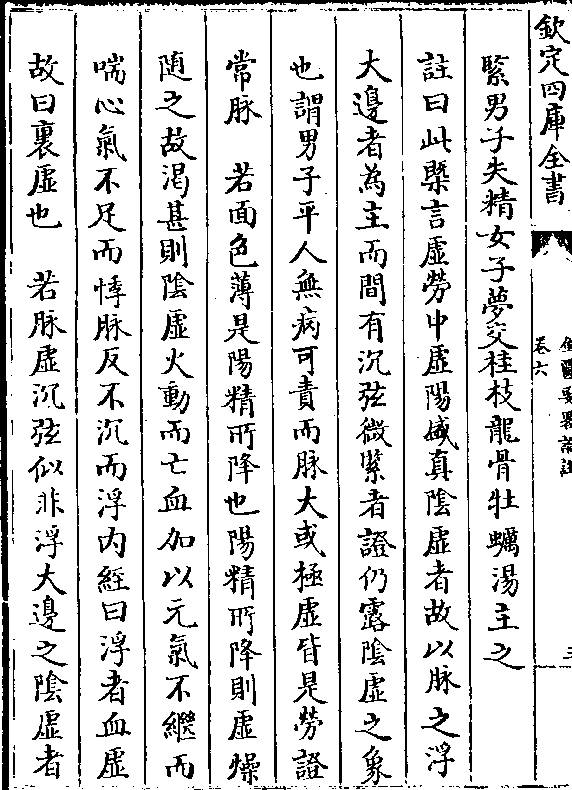 欽定四庫全書
卷六
緊男子失精女子夢交桂枝龍骨牡蠣湯主之
註曰此槩言虛勞中虛陽盛真陰虛者故以脉之浮
大邊者為主而間有沉弦微緊者證仍露陰虛之象
也謂男子平人無病可責而脉大或極虛皆是勞證
常脉　若面色薄是陽精所降也陽精所降則虛燥
随之故渴甚則陰虛火動而亡血加以元氣不繼而
喘心氣不足而悸脉反不沉而浮内經曰浮者血虛
故曰裏虛也　若脉虛沉弦似非浮大邊之陰虛者